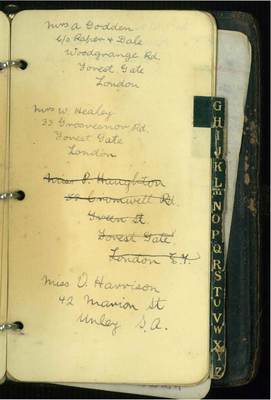 Mrs A Godden
c/o Raper & Dale
Woodgrange Rd.
Forest Gate
London
Mrs W Healey
35 Grosvenor Rd.
Forest Gate
London
Miss P. Haughton
Cromwell Rd.
Green St.
Forest Gate.
London E.7.
Miss O. Harrison
42 Marion St
Unley S.A.
G
H
I
J
K
L
M
N
O
P
Q
R
S
T
U
V
W
X
Y
Z